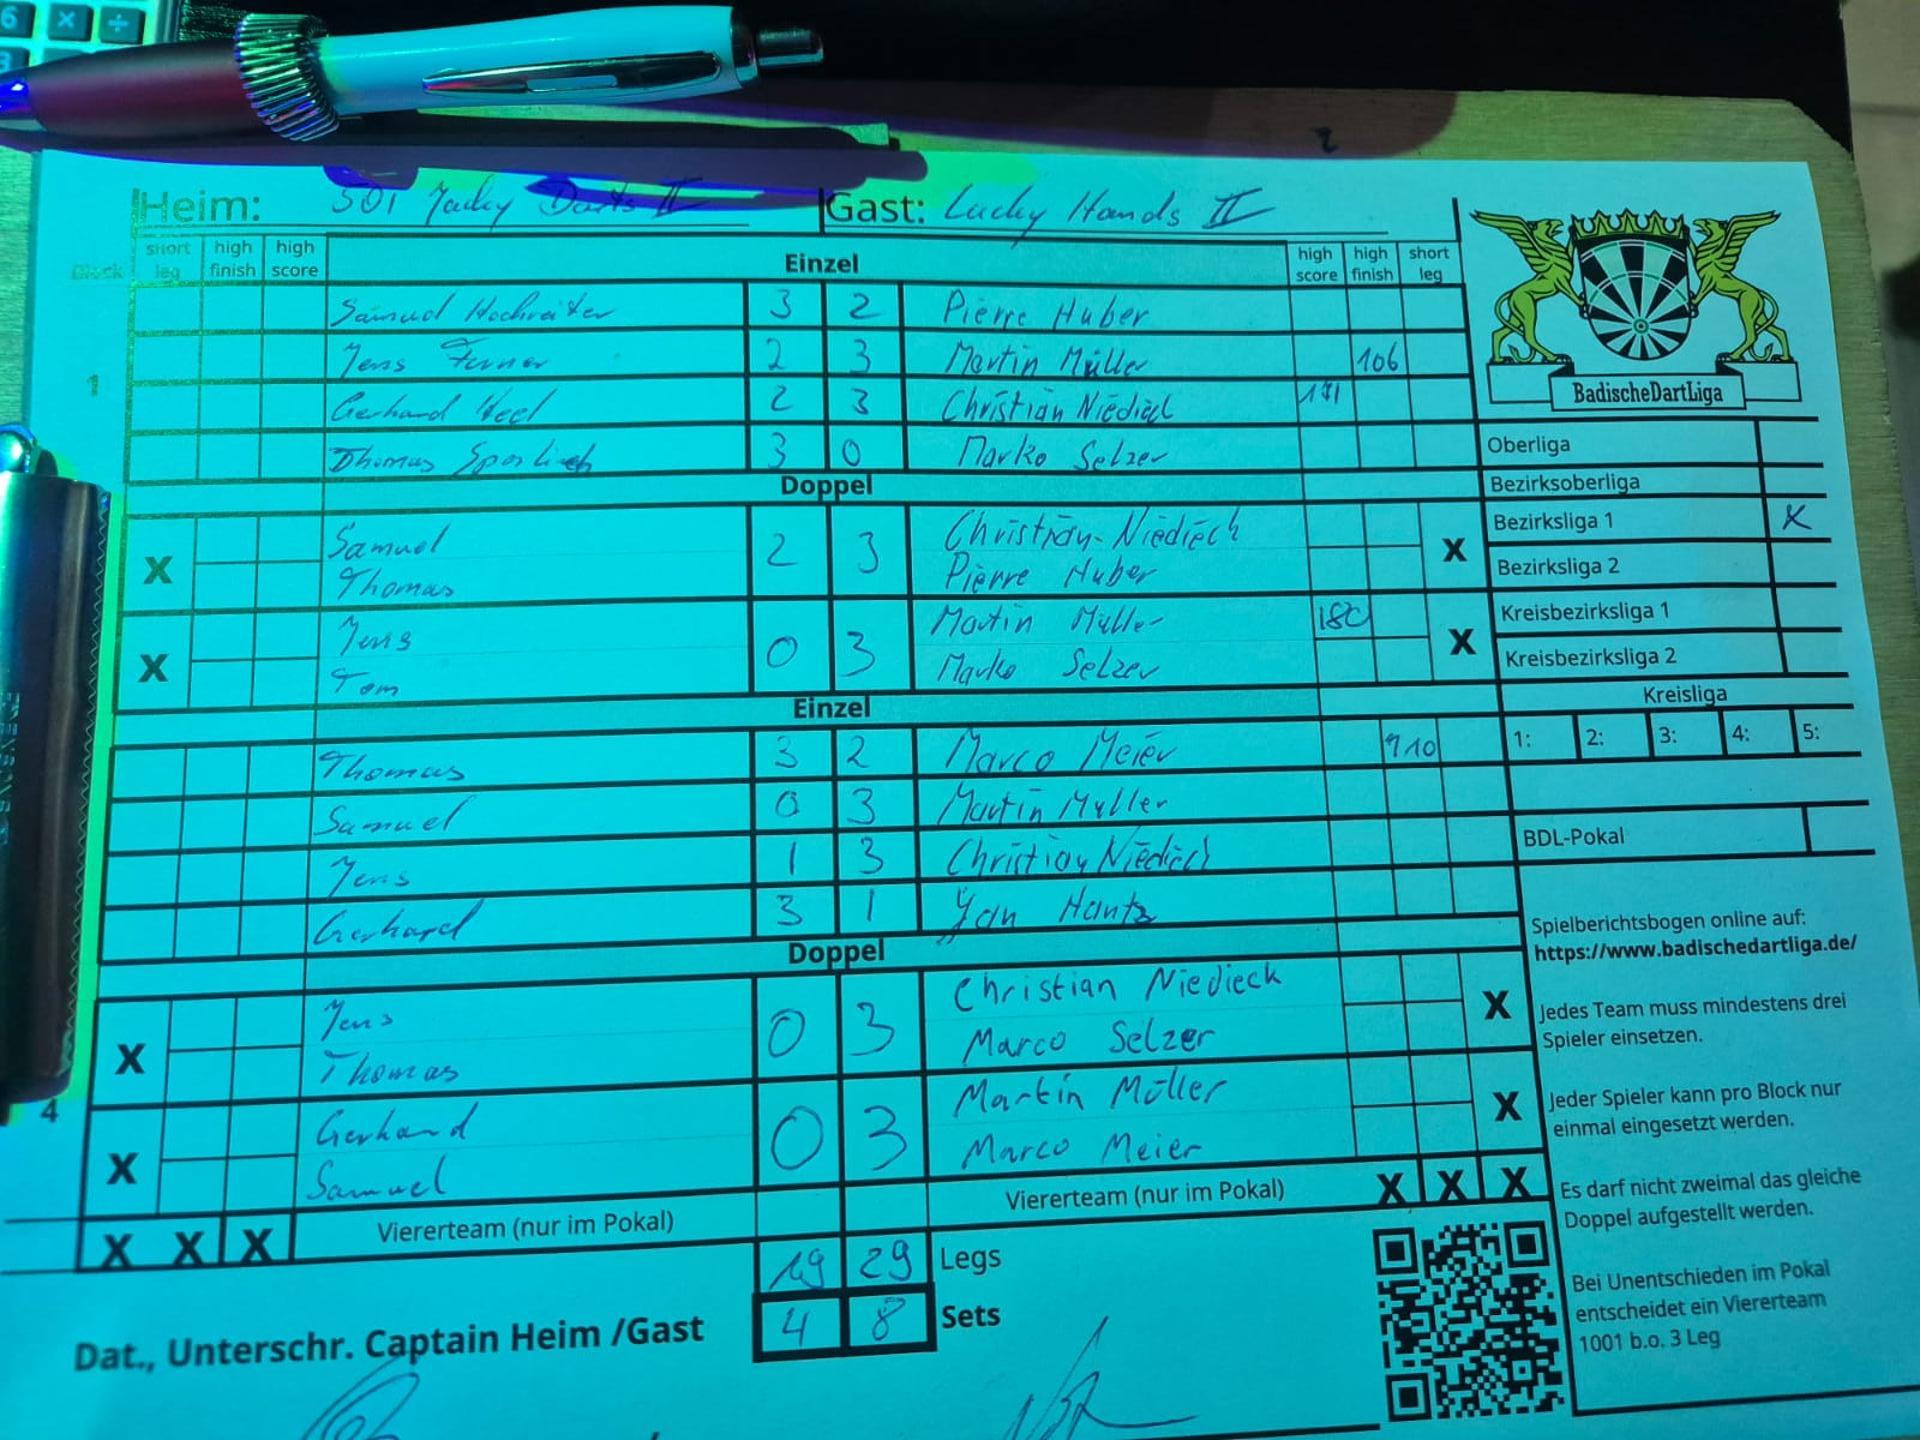 6 × ÷
Heim: 501 Jacky Darts II Gast: Lucky Hands II
Block short leg high finish high score Einzel high score high finish short leg
Samuel Hochreiter 3 2 Pierre Huber
1 Jens Ferner 2 3 Martin Müller 106
Gerhard Heel 2 3 Christian Niedieck 171
Thomas 3 0 Marko Selzer
Doppel
X Samuel 2 3 Christian Niedieck X
Thomas Pierre Huber
X Jens 0 3 Martin Müller 180 X
Tom Marko Selzer
Einzel
Thomas 3 2 Marco Meier 110
Samuel 0 3 Martin Müller
Jens 1 3 Christian Niedieck
Gerhard 3 1 Yan Hantz
Doppel
X Jens 0 3 Christian Niedieck X
Thomas Marco Selzer
4 X Gerhard 0 3 Martin Müller X
Samuel Marco Meier
X X X Viererteam (nur im Pokal) Viererteam (nur im Pokal) X X X
19 29 Legs
4 8 Sets
Dat., Unterschr. Captain Heim /Gast
BadischeDartLiga
Oberliga
Bezirksoberliga
Bezirksliga 1 X
Bezirksliga 2
Kreisbezirksliga 1
Kreisbezirksliga 2
Kreisliga
1: 2: 3: 4: 5:
BDL-Pokal
Spielberichtsbogen online auf:
https://www.badischedartliga.de/
Jedes Team muss mindestens drei
Spieler einsetzen.
Jeder Spieler kann pro Block nur
einmal eingesetzt werden.
Es darf nicht zweimal das gleiche
Doppel aufgestellt werden.
Bei Unentschieden im Pokal
entscheidet ein Viererteam
1001 b.o. 3 Leg